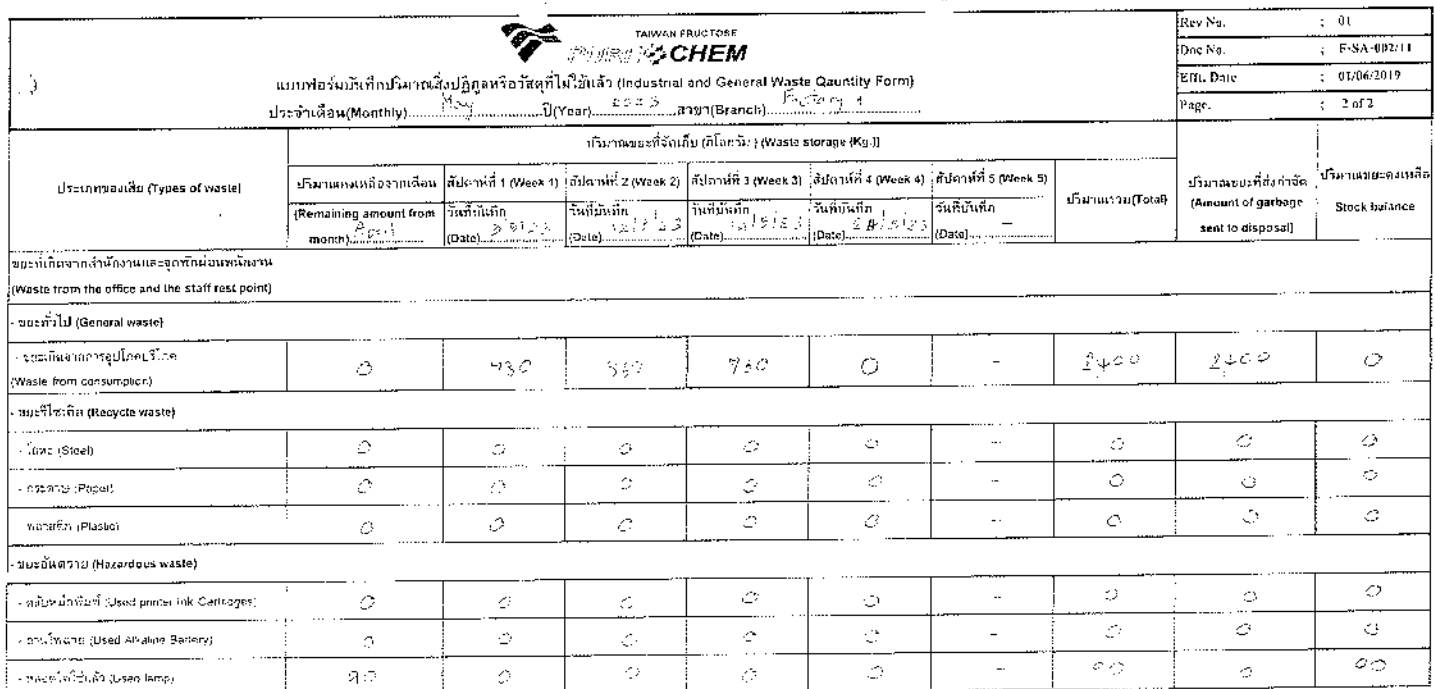 TAIWAN FRUCTOSE
CHEM
Rev No. : 01
Doc No. : F-SA-002/11
Effi. Date : 01/06/2019
Page. : 2 of 2
แบบฟอร์มบันทึกปริมาณสิ่งปฏิกูลหรือวัสดุที่ไม่ใช้แล้ว (Industrial and General Waste Qauntity Form)
ประจำเดือน(Monthly) May ปี(Year) 2023 สาขา(Branch) Factory 1
ปริมาณขยะที่จัดเก็บ (กิโลกรัม) (Waste storage (Kg.))
ประเภทของเสีย (Types of waste)
ปริมาณคงเหลือจากเดือน
(Remaining amount from
month) April
สัปดาห์ที่ 1 (Week 1)
วันที่บันทึก
(Date)
สัปดาห์ที่ 2 (Week 2)
วันที่บันทึก
(Date)
สัปดาห์ที่ 3 (Week 3)
วันที่บันทึก
(Date)
สัปดาห์ที่ 4 (Week 4)
วันที่บันทึก
(Date)
สัปดาห์ที่ 5 (Week 5)
วันที่บันทึก
(Date) -
ปริมาณรวม(Total)
ปริมาณขยะที่ส่งกำจัด
(Amount of garbage
sent to disposal)
ปริมาณขยะคงเหลือ
Stock balance
ขยะที่เกิดจากสำนักงานและจุดพักผ่อนพนักงาน
(Waste from the office and the staff rest point)
- ขยะทั่วไป (General waste)
- ขยะเกิดจากการอุปโภคบริโภค
(Waste from consumption) 0 730 0 - 2400 2400 0
- ขยะรีไซเคิล (Recycle waste)
- โลหะ (Steel) 0 0 0 0 0 - 0 0 0
- กระดาษ (Paper) 0 0 0 0 0 - 0 0 0
- พลาสติก (Plastic) 0 0 0 0 0 - 0 0 0
- ขยะอันตราย (Hazardous waste)
- ตลับหมึกพิมพ์ (Used printer ink Cartridges) 0 0 0 0 0 - 0 0 0
- ถ่านไฟฉาย (Used Alkaline Battery) 0 0 0 0 0 - 0 0 0
- หลอดไฟใช้แล้ว (Used lamp) 90 0 0 0 0 - 90 0 90